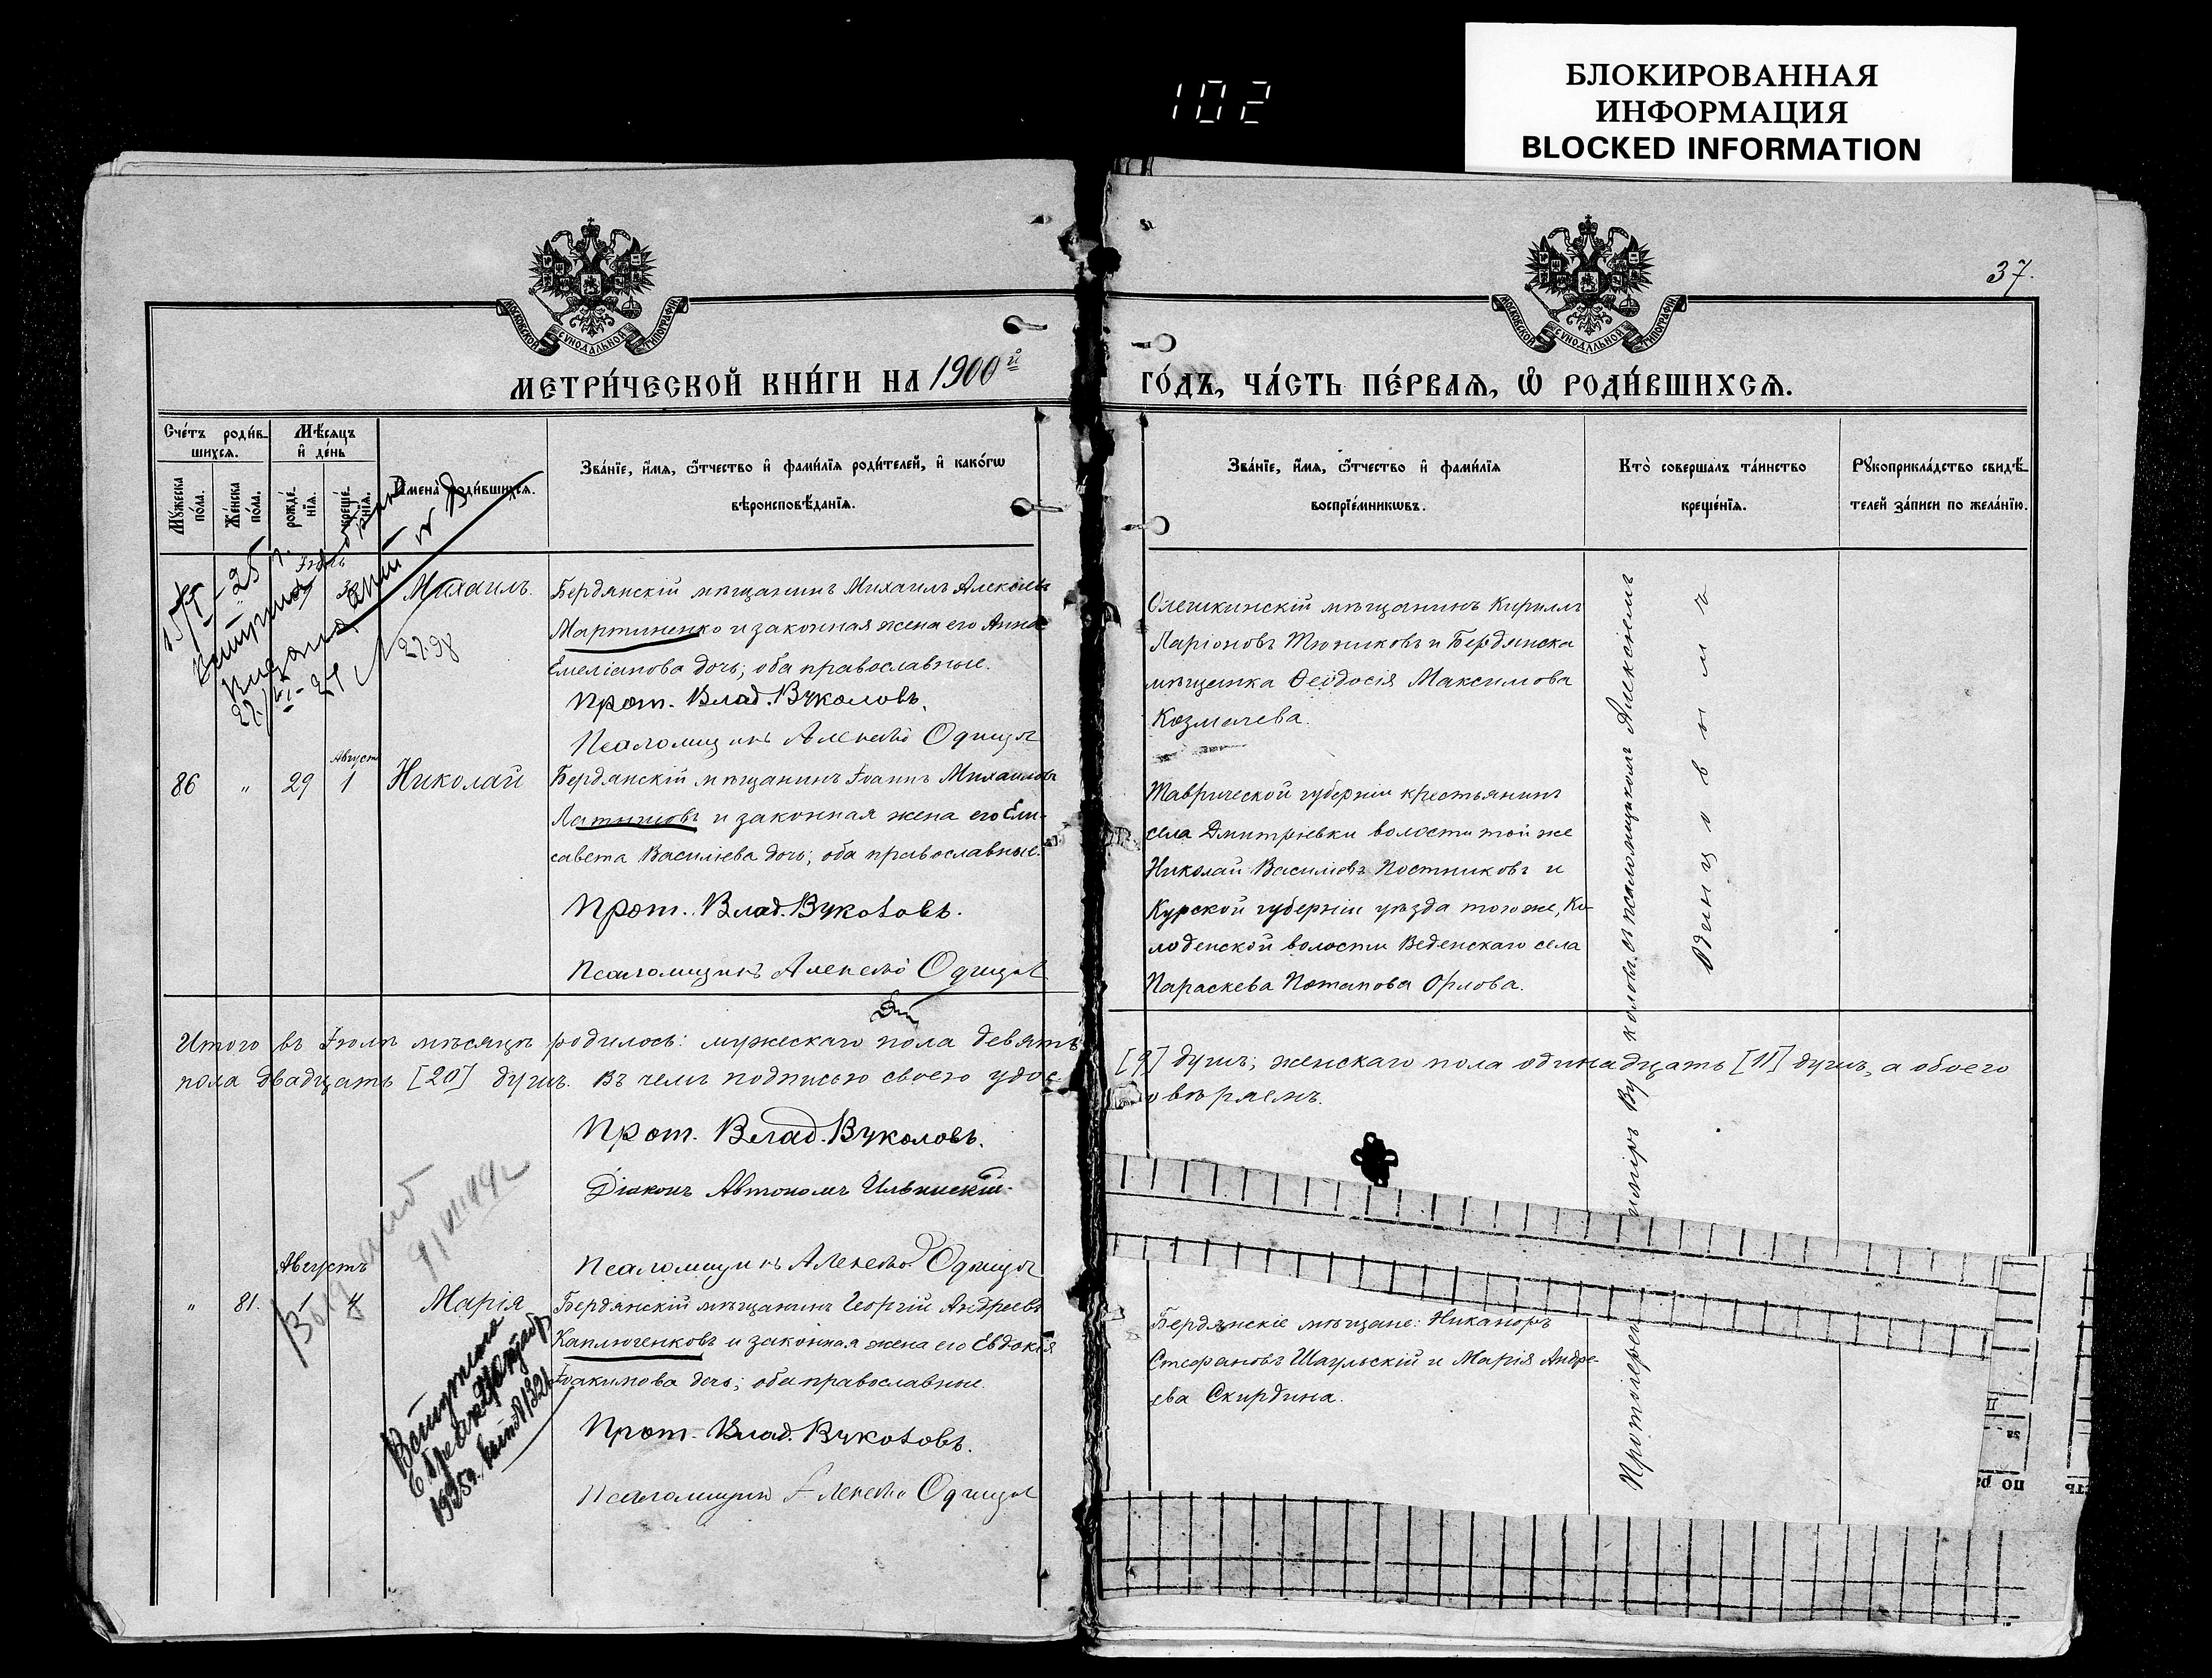 БЛОКИРОВАННАЯ
ИНФОРМАЦИЯ
BLOCKED INFORMATION
102
37.
МОСКОВСКОЙ СУНОДАЛЬНОЙ ТИПОГРАФІИ
МОСКОВСКОЙ СУНОДАЛЬНОЙ ТИПОГРАФІИ
МЕТРИ́ЧЕСКОЙ КНИ́ГИ НА 1900й
ГО́ДЪ, ЧА́СТЬ ПЕ́РВАЯ, Ѡ РОДИ́ВШИХСЯ.
Сче́тъ роди́в-
шихся.
Мѣсяцъ
и де́нь
Му́жеска
по́ла.
Же́нска
по́ла.
рожде́-
нїя.
креще́-
нїя.
Имена̀ роди́вшихся.
Зва́нїе, и́мя, ѻ́тчество и фами́лїя роди́телей, и како́гѡ
вѣроисповѣ́данїя.
Зва́нїе, и́мя, ѻ́тчество и фами́лїя
воспрїе́мникѡвъ.
Кто̀ соверша́лъ та́инство
креще́нїя.
Рукоприкла́дство свидѣ́-
телей за́писи по жела́нїю.
Іюль
Михаилъ.
Бердянскій мѣщанинъ Михаилъ Алексѣевъ
Мартиненко и законная жена его Анна
Емеліанова дочь; оба православные.
Прот. Влад. Вуколовъ.
Псаломщикъ Алексѣй Одинцов
2798
Олешкинскій мѣщанинъ Кириллъ
Ларіоновъ Тюниковъ и Бердянска
мѣщанка Ѳеодосія Максимова
Козмичева.
Августъ
86 " 29 1 Николай
Бердянскій мѣщанинъ Іоаннъ Михаиловъ
Латышовъ и законная жена его Ели-
савета Василіева дочь; оба православные.
Прот. Влад. Вуколовъ.
Псаломщикъ Алексѣй Одинцов
Таврической губерніи крестьянинъ
села Дмитріевки волости той же
Николай Василіевъ Постниковъ и
Курской губерніи уѣзда того же, Ко-
лоденской волости Веденскаго села
Параскева Потапова Орлова.
Протоіерей Вуколовъ съ псаломщикомъ Алексѣемъ
Одинцовымъ
Итого въ Іюлѣ мѣсяцѣ родилось: мужескаго пола девять
[9] душъ; женскаго пола одинадцать [11] душъ, а обоего
пола двадцать [20] душъ. Въ чемъ подписью своею удос-
товѣряемъ.
Прот. Влад. Вуколовъ.
Діаконъ Автономъ Ильинскій
Псаломщикъ Алексѣй Одинцов
Августъ
" 81. 1 4 Марія
Бердянскій мѣщанинъ Георгій Андреевъ
Каплюченковъ и законная жена его Евдокія
Іоакимова дочь; оба православные.
Прот. Влад. Вуколовъ.
Псаломщикъ Алексѣй Одинцов
Бердянскіе мѣщане: Никаноръ
Стефановъ Шаульскій и Марія Андре-
ева Скирдина.